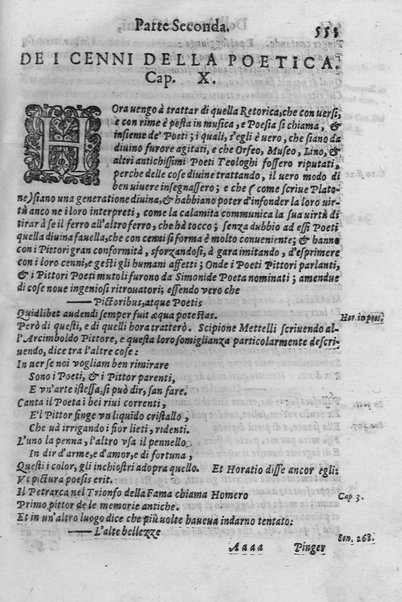 Parte Seconda. 553
DE I CENNI DELLA POETICA.
Cap. X.
HOra uengo à trattar di quella Retorica, che con uersi,
e con rime è posta in musica, e Poesia si chiama, &
insieme de' Poeti; i quali, s'egli è uero, che siano da
diuino furore agitati, e che Orfeo, Museo, Lino, &
altri antichissimi Poeti Teologhi fossero riputati,
perche delle cose diuine trattando, il uero modo di
ben uiuere insegnassero; e che (come scriue Plato-
ne) siano una generatione diuina, & habbiano poter d'infonder la loro uir-
tù anco ne i loro interpreti, come la calamita communica la sua uirtù di
tirare à se il ferro all'altro ferro, che hà tocco; senza dubbio ad essi Poeti
quella diuina fauella, che con cenni si forma è molto conueniente; & hanno
con i Pittori gran conformità, sforzandosi, à gara imitando, d'esprimere
con i loro cenni, e gesti gli humani affetti; Onde i Poeti Pittori parlanti,
& i Pittori Poeti mutoli furono da Simonide Poeta nominati; amendue
di cose noue ingeniosi ritrouatori; essendo vero che
—— Pictoribus, atque Poetis
Quidlibet audendi semper fuit aqua potestas. Hor. in poet.
Però di questi, e di quelli hora tratterò. Scipione Mettelli scriuendo al-
l'Arcimboldo Pittore, e questa loro somiglianza particolarmente descri-
uendo, dice tra l'altre cose:
In uer se noi vogliam ben rimirare
Sono i Poeti, & i Pittor parenti,
E vn'arte istessa, si può dir, san fare.
Canta il Poeta i bei riui correnti,
E'l Pittor finge vn liquido cristallo,
Che uà irrigando i fior lieti, ridenti.
L'uno la penna, l'altro vsa il pennello
In dir d'arme, e d'amor, e di fortuna,
Questi i color, gli inchiostri adopra quello. Et Horatio disse ancor egli:
Vt pictura poesis erit.
Il Petrarca nel Trionfo della Fama chiama Homero Cap 3.
Primo pittor de le memorie antiche.
Et in vn'altro luogo dice che più volte haueua indarno tentato:
—— L'alte bellezze Son. 268.
Aaaa Pinger